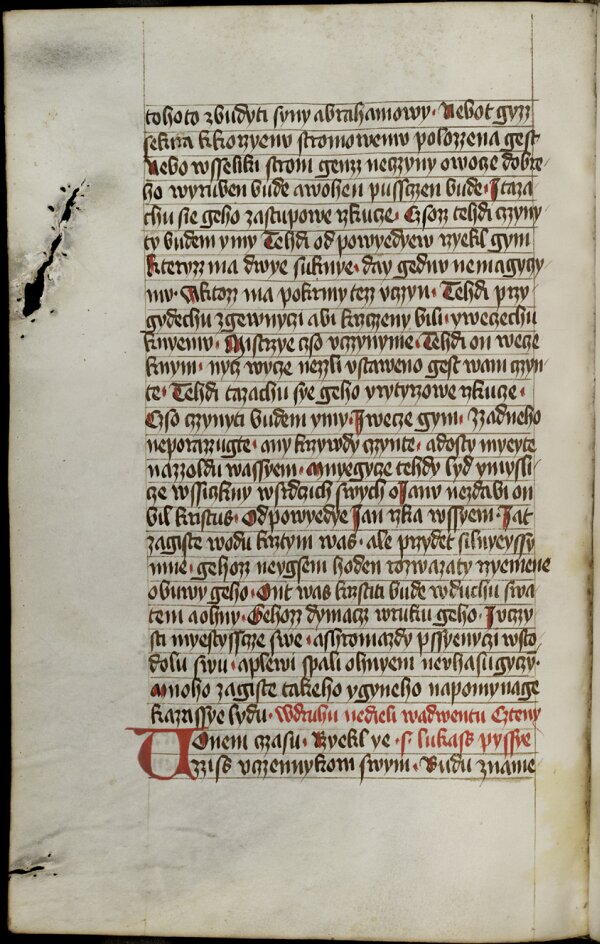 tohoto zbudyti syny abrahamowy · Nebot gyzz
sekira kkorzyenu stromowemu polozzena gest
Nebo wsseliki strom genzz neczyny owocze dobre
ho wyruben bude awohen pussczen bude · I taza
chu sie geho zastupowe rzkucze · Czsoz tehdi czyny
ty budem ymy Tehdi odpowyedyew rzyekl gym
kteryzz ma dwye suknye · day gednu nemagyczy
mu · Aktozz ma pokrmy tezz vczyn · Tehdi przy
gydechu zgewnyczi abi krzczeny bili · ywecechu
knyemu · Mistrzye czso vczynyme · Tehdi on wecze
knym · nycz wycze nezzli vstaweno gest wam czyn
te · Tehdi tazachu sye geho yrytyrzowe rzkucze ·
Czso czynyti budem ymy · I wecze gym · Zzadneho
neporazzugte · any krzywdy czynte · adosty myeyte
nazzoldu wassyem · Mnyegycze tehdy lyd ymysli
cze wssiczkny wsrdczich swych o Janu nezdabi on
bil kristus · Odpowyedye Jan rzka wssyem · Jat
zagiste wodu krztym was · ale przydet silnyeyssy
mne · gehozz neygsem hoden rozwazaty rzyemene
obuwy geho · Ont was krztiti bude wduchu swa
tem aohny · Gehozz dymacz wruku geho · Ivczy
sti myestyssczie swe · ashromazdy pssyenyczi wsto
dolu swu · aplewi spali ohnyem neuhasugyczy ·
Mnoho zagiste takeho ygyneho napomynage
kazassye lydu · Wdruhu nedieli wadwentu Czteny
Uonem czasu · Rzyekl ye · s lukass pyssye
zziss vczennykom swym · Budu zname